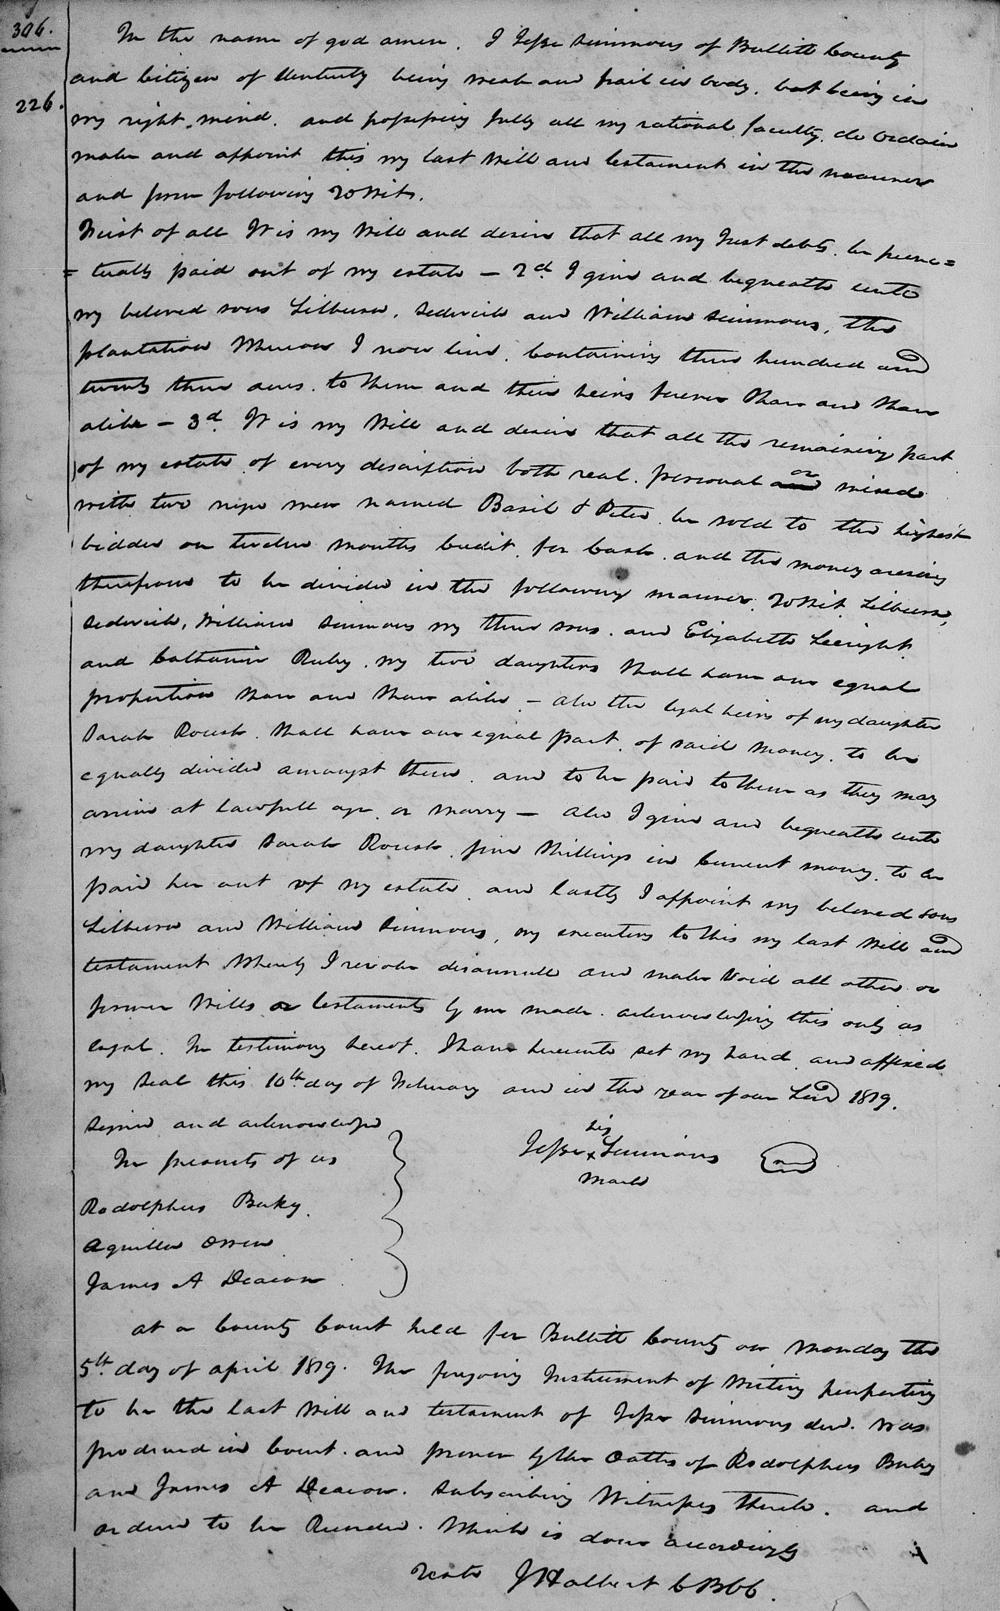 306.
226.
In the name of god amen. I Jesse Simmons of Bullitt County
and Citizen of Kentucky being weak and frail in body, but being in
my right mind, and possessing fully all my rational faculty, do ordain
make and appoint this my last Will and testament in the manner
and form following Towit.
First of all It is my Will and desire that all my Just debts be punc=
=tually paid out of my estate – 2d. I give and bequeath unto
my beloved sons Lilburn, Sedwick and William Simmons, the
plantation Whereon I now live, Containing three hundred and
twenty three acres, to them and their heirs forever Share and Share
alike – 3d. It is my Will and desire that all the remaining part
of my estate of every description both real, personal or mixed
with two negro men named Basil & Peter be sold to the highest
bidder on twelve months Credit, for Cash, and the money arising
therefrom to be divided in the following manner, Towit, Lilburn,
Sedwick, William Simmons my three sons, and Elizabeth
and Catharine Ruby my two daughters Shall have an equal
proportion Share and Share alike – also the legal heirs of my daughter
Sarah Roush Shall have an equal part, of said money, to be
equally divided amongst them, and to be paid to them as they may
arrive at lawfull age or marry – also I give and bequeath unto
my daughter Sarah Roush, five Shillings in Current money, to be
paid her out of my estate and lastly I appoint my beloved sons
Lilburn and William Simmons, my executors to this my last Will and
testament Whereby I revoke disannull and make Void all other or
former Wills or testaments by me made, acknowledging this only as
legal. In testimony hereof, I have hereunto set my hand and affixed
my Seal this 10th day of February and in the year of our Lord 1819.
Signed and acknowledged
In presents of us
his
Jesse x Simmons
mark
Rodolphus Buky
Aquilla Owen
James A Deacon
At a County Court held for Bullitt County on Monday the
5th day of april 1819. The foregoing Instrument of Writing purporting
to be the last Will and testament of Jesse Simmons decd. was
produced in Court, and proven by the Oaths of Rodolphus Buky
and James A Deacon, Subscribing Witnesses thereto, and
ordered to be Recorded. Which is done accordingly
Teste J Halbert C B C C.